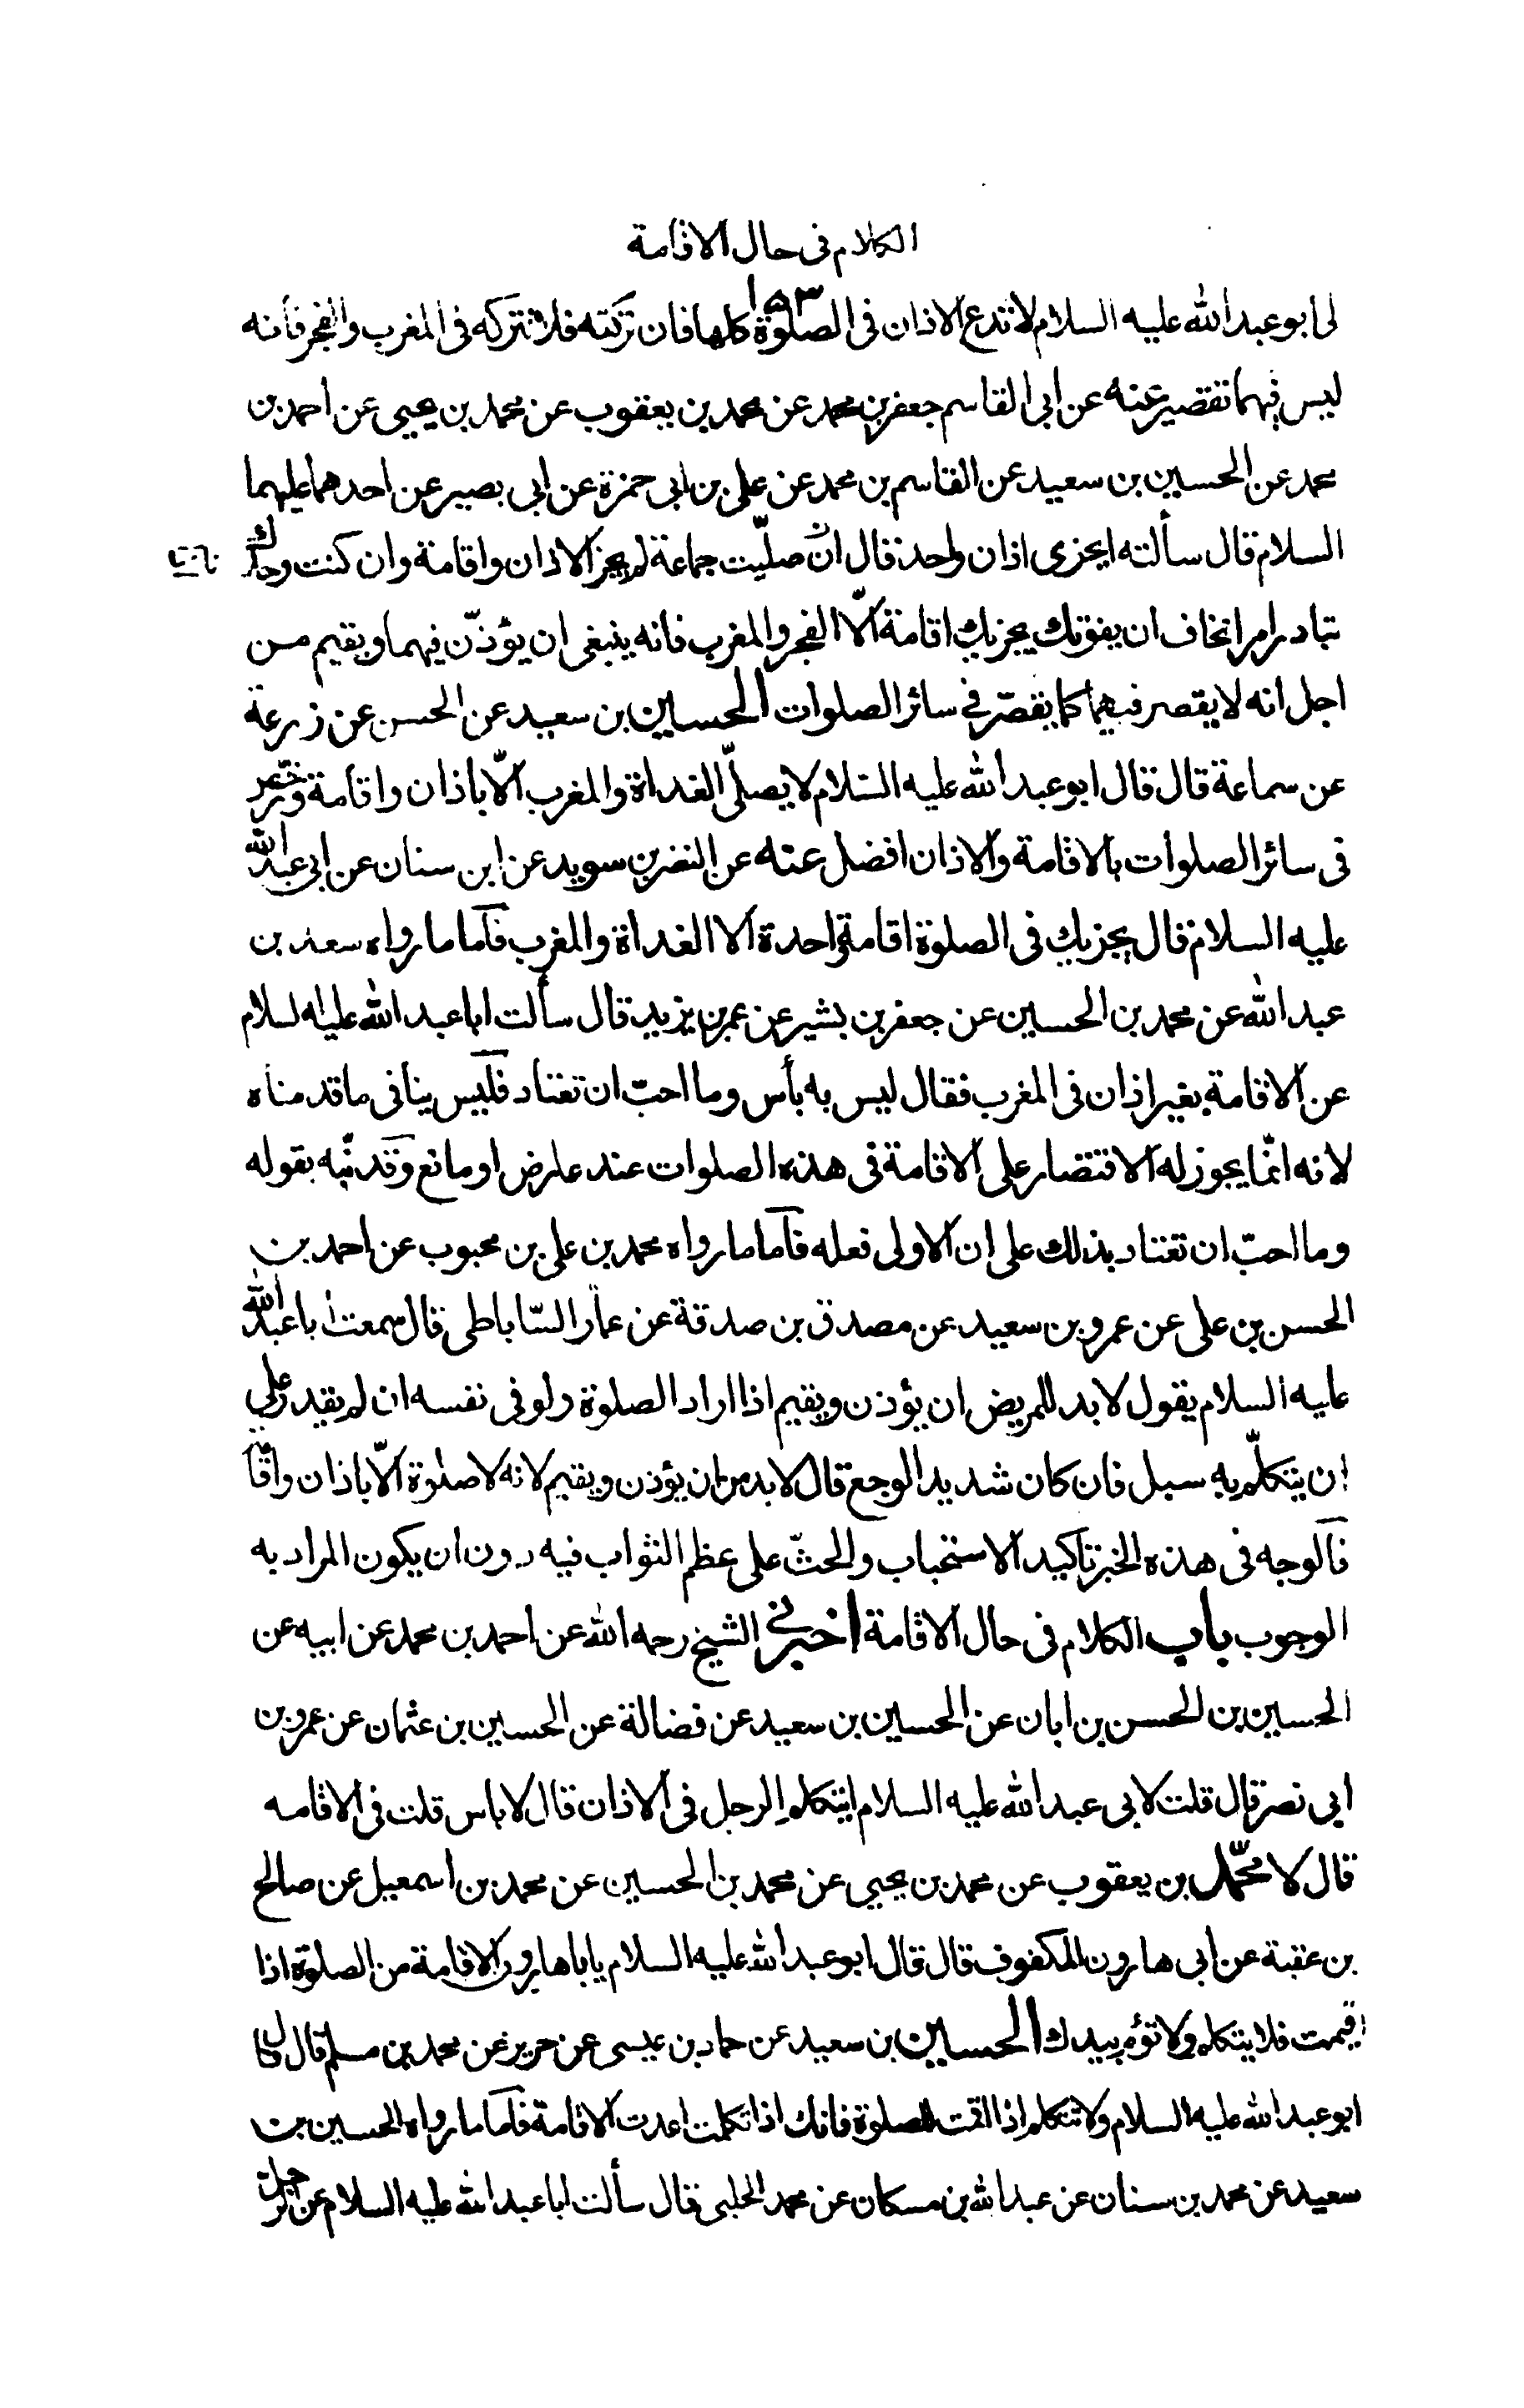 الكلام فى حال الاقامة
١٥٣
لى ابو عبد الله عليه السلام لا تدع الاذان فى الصلوة كلها فان تركته فلا تتركه فى المغرب والفجر فانه
ليس فيهما تقصير عنه عن ابى القاسم جعفر بن محمد عن محمد بن يعقوب عن محمد بن يحيى عن احمد بن
محمد عن الحسين بن سعيد عن القاسم بن محمد عن على بن ابى حمزة عن ابى بصير عن احدهما عليهما
السلام قال سألته ايجزى اذان واحد قال ان صليّت جماعة لم يجز الا اذان واقامة وان كنت وحدك
تبادر امرا تخاف ان يفوتك يجزيك اقامة الّا الفجر والمغرب فانه ينبغى ان يؤذّن فيهما ويقيم من
اجل انه لا يقصر فيهما كما يقصّر فى سائر الصلوات الحسين بن سعيد عن الحسن عن زرعة
عن سماعة قال قال ابو عبد الله عليه السّلام لا يصلّى الغداة والمغرب الّا باذان واقامة ورخّص
فى سائر الصلوات بالاقامة والاذان افضل عنه عن النضر بن سويد عن ابن سنان عن ابى عبد الله
عليه السلام قال يجزيك فى الصلوة اقامة واحدة الا الغداة والمغرب فأما ما رواه سعد بن
عبد الله عن محمد بن الحسين عن جعفر بن بشير عن عمر بن يزيد قال سألت ابا عبد الله عليه السلام
عن الاقامة بغير اذان فى المغرب فقال ليس به بأس وما احبّ ان تعتاد فليس ينافى ما قدمناه
لانه انّما يجوز له الاقتصار على الاقامة فى هذه الصلوات عند عارض او مانع وقد نبّه بقوله
وما احبّ ان تعتاد بذلك على ان الاولى فعله فأما ما رواه محمد بن على بن محبوب عن احمد بن
الحسن بن على عن عمرو بن سعيد عن مصدق بن صدقة عن عمار السّاباطى قال سمعت ابا عبد الله
عليه السلام يقول لا بد للمريض ان يؤذن ويقيم اذا اراد الصلوة ولو فى نفسه ان لم يقدر على
ان يتكلّم به سبل فان كان شديد الوجع قال لا بد من ان يؤذن ويقيم لانه لا صلوة الّا باذان واقا
فالوجه فى هذه الخبر تاكيد الاستحباب والحثّ على عظم الثواب فيه دون ان يكون المراد به
الوجوب باب الكلام فى حال الاقامة اخبرنى الشيخ رحمه الله عن احمد بن محمد عن ابيه عن
الحسين بن الحسن بن ابان عن الحسين بن سعيد عن فضالة عن الحسين بن عثمان عن عمرو بن
ابى نصر قال قلت لابى عبد الله عليه السلام ايتكلم الرجل فى الاذان قال لا باس قلت فى الاقامه
قال لا محمّد بن يعقوب عن محمد بن يحيى عن محمد بن الحسين عن محمد بن اسمعيل عن صالح
بن عقبة عن ابى هارون المكفوف قال قال ابو عبد الله عليه السلام يا با هارون الاقامة من الصلوة اذا
اقيمت فلا يتكلم ولا تؤم بيدك الحسين بن سعيد عن حماد بن عيسى عن حريز عن محمد بن مسلم قال قال
ابو عبد الله عليه السلام ولا تتكلم اذا اقمت للصلوة فانك اذا تكلمت اعدت الاقامة فأما ما رواه الحسين بن
سعيد عن محمد بن سنان عن عبد الله بن مسكان عن محمد الحلبى قال سألت ابا عبد الله عليه السلام عن الرجل